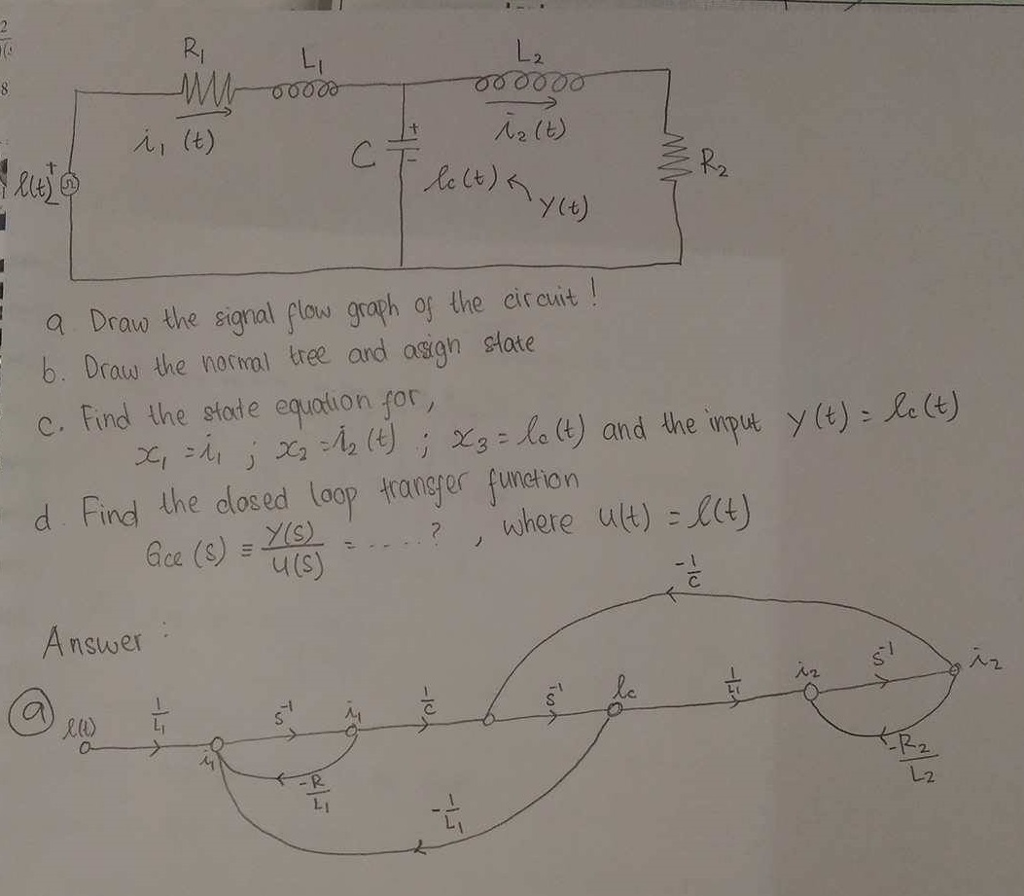 R₁
L₁
L₂
i₁ (t)
i₂ (t)
C
+
-
l(t)
+
-
lc (t)
Y(t)
R₂
a. Draw the signal flow graph of the circuit !
b. Draw the normal tree and asign state
c. Find the state equation for,
x₁ = i₁ ; x₂ = i₂ (t) ; x₃ = lc (t) and the input y (t) = lc (t)
d. Find the closed loop transfer function
Gce (s) ≡ Y(s)/U(s) = ..... ? , where u(t) = l(t)
Answer :
-1/C
a
l(t)
1/L₁
i₁
s⁻¹
i₁
1/C
s⁻¹
lc
1/L₁
i₂
s⁻¹
i₂
-R/L₁
-1/L₁
-R₂/L₂